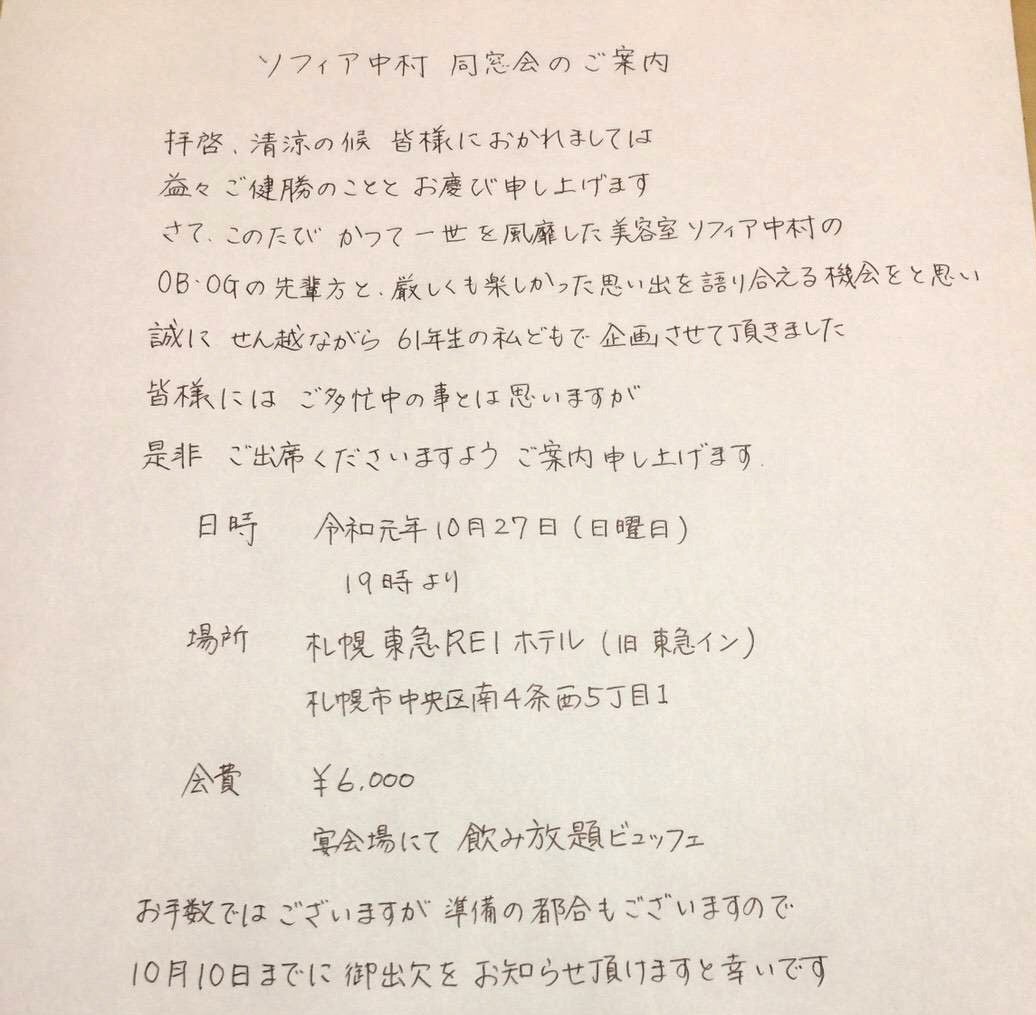 ソフィア中村 同窓会のご案内
拝啓、清涼の候 皆様におかれましては
益々ご健勝のこととお慶び申し上げます
さて、このたび かつて一世を風靡した美容室ソフィア中村の
OB・OGの先輩方と、厳しくも楽しかった思い出を語り合える機会をと思い
誠に せん越ながら 61年生の私どもで企画させて頂きました
皆様には ご多忙中の事とは思いますが
是非 ご出席くださいますよう ご案内申し上げます.
日時 令和元年10月27日(日曜日)
19時より
場所 札幌東急REIホテル(旧東急イン)
札幌市中央区南4条西5丁目1
会費 ¥6,000
宴会場にて 飲み放題ビュッフェ
お手数ではございますが 準備の都合もございますので
10月10日までに 御出欠を お知らせ頂けますと幸いです